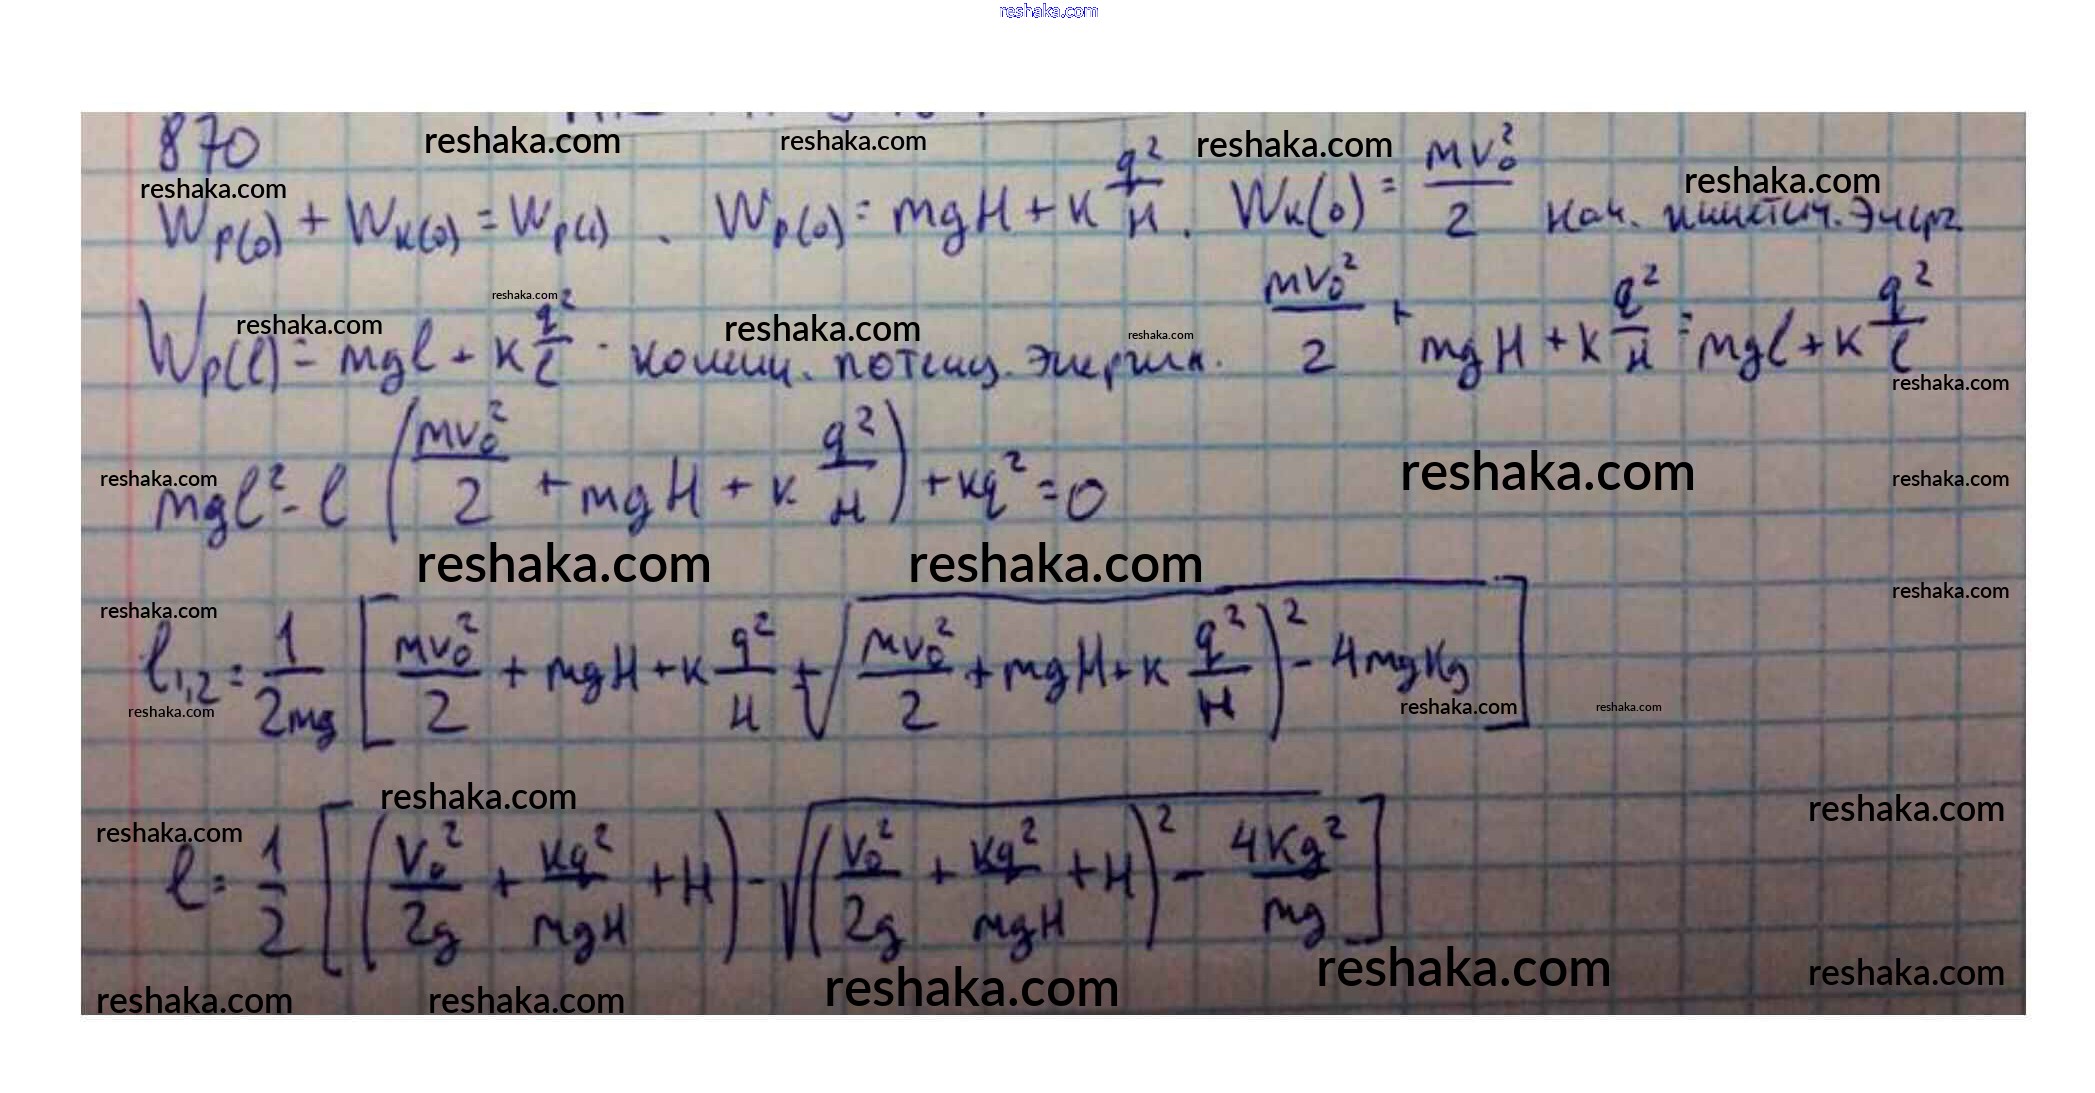 reshaka.com
870
reshaka.com reshaka.com reshaka.com reshaka.com reshaka.com
W_P(0) + W_K(0) = W_P(l) . W_P(0) = mgH + K q²/H . W_K(0) = mv₀²/2 нач. кинетич. Энерг
reshaka.com reshaka.com reshaka.com reshaka.com
W_P(l) = mgl + K q²/l · конечн. потенц. энергия. mv₀²/2 + mgH + K q²/H = mgl + K q²/l
reshaka.com
mgl² - l (mv₀²/2 + mgH + K q²/H) + Kq² = 0
reshaka.com reshaka.com reshaka.com
reshaka.com reshaka.com
reshaka.com reshaka.com
l₁,₂ = 1/2mg [mv₀²/2 + mgH + K q²/H ± √(mv₀²/2 + mgH + K q²/H)² - 4mgKq]
reshaka.com reshaka.com reshaka.com
reshaka.com reshaka.com reshaka.com
l = 1/2 [(v₀²/2g + Kq²/mgH + H) - √(v₀²/2g + Kq²/mgH + H)² - 4Kq²/mg]
reshaka.com reshaka.com reshaka.com reshaka.com reshaka.com